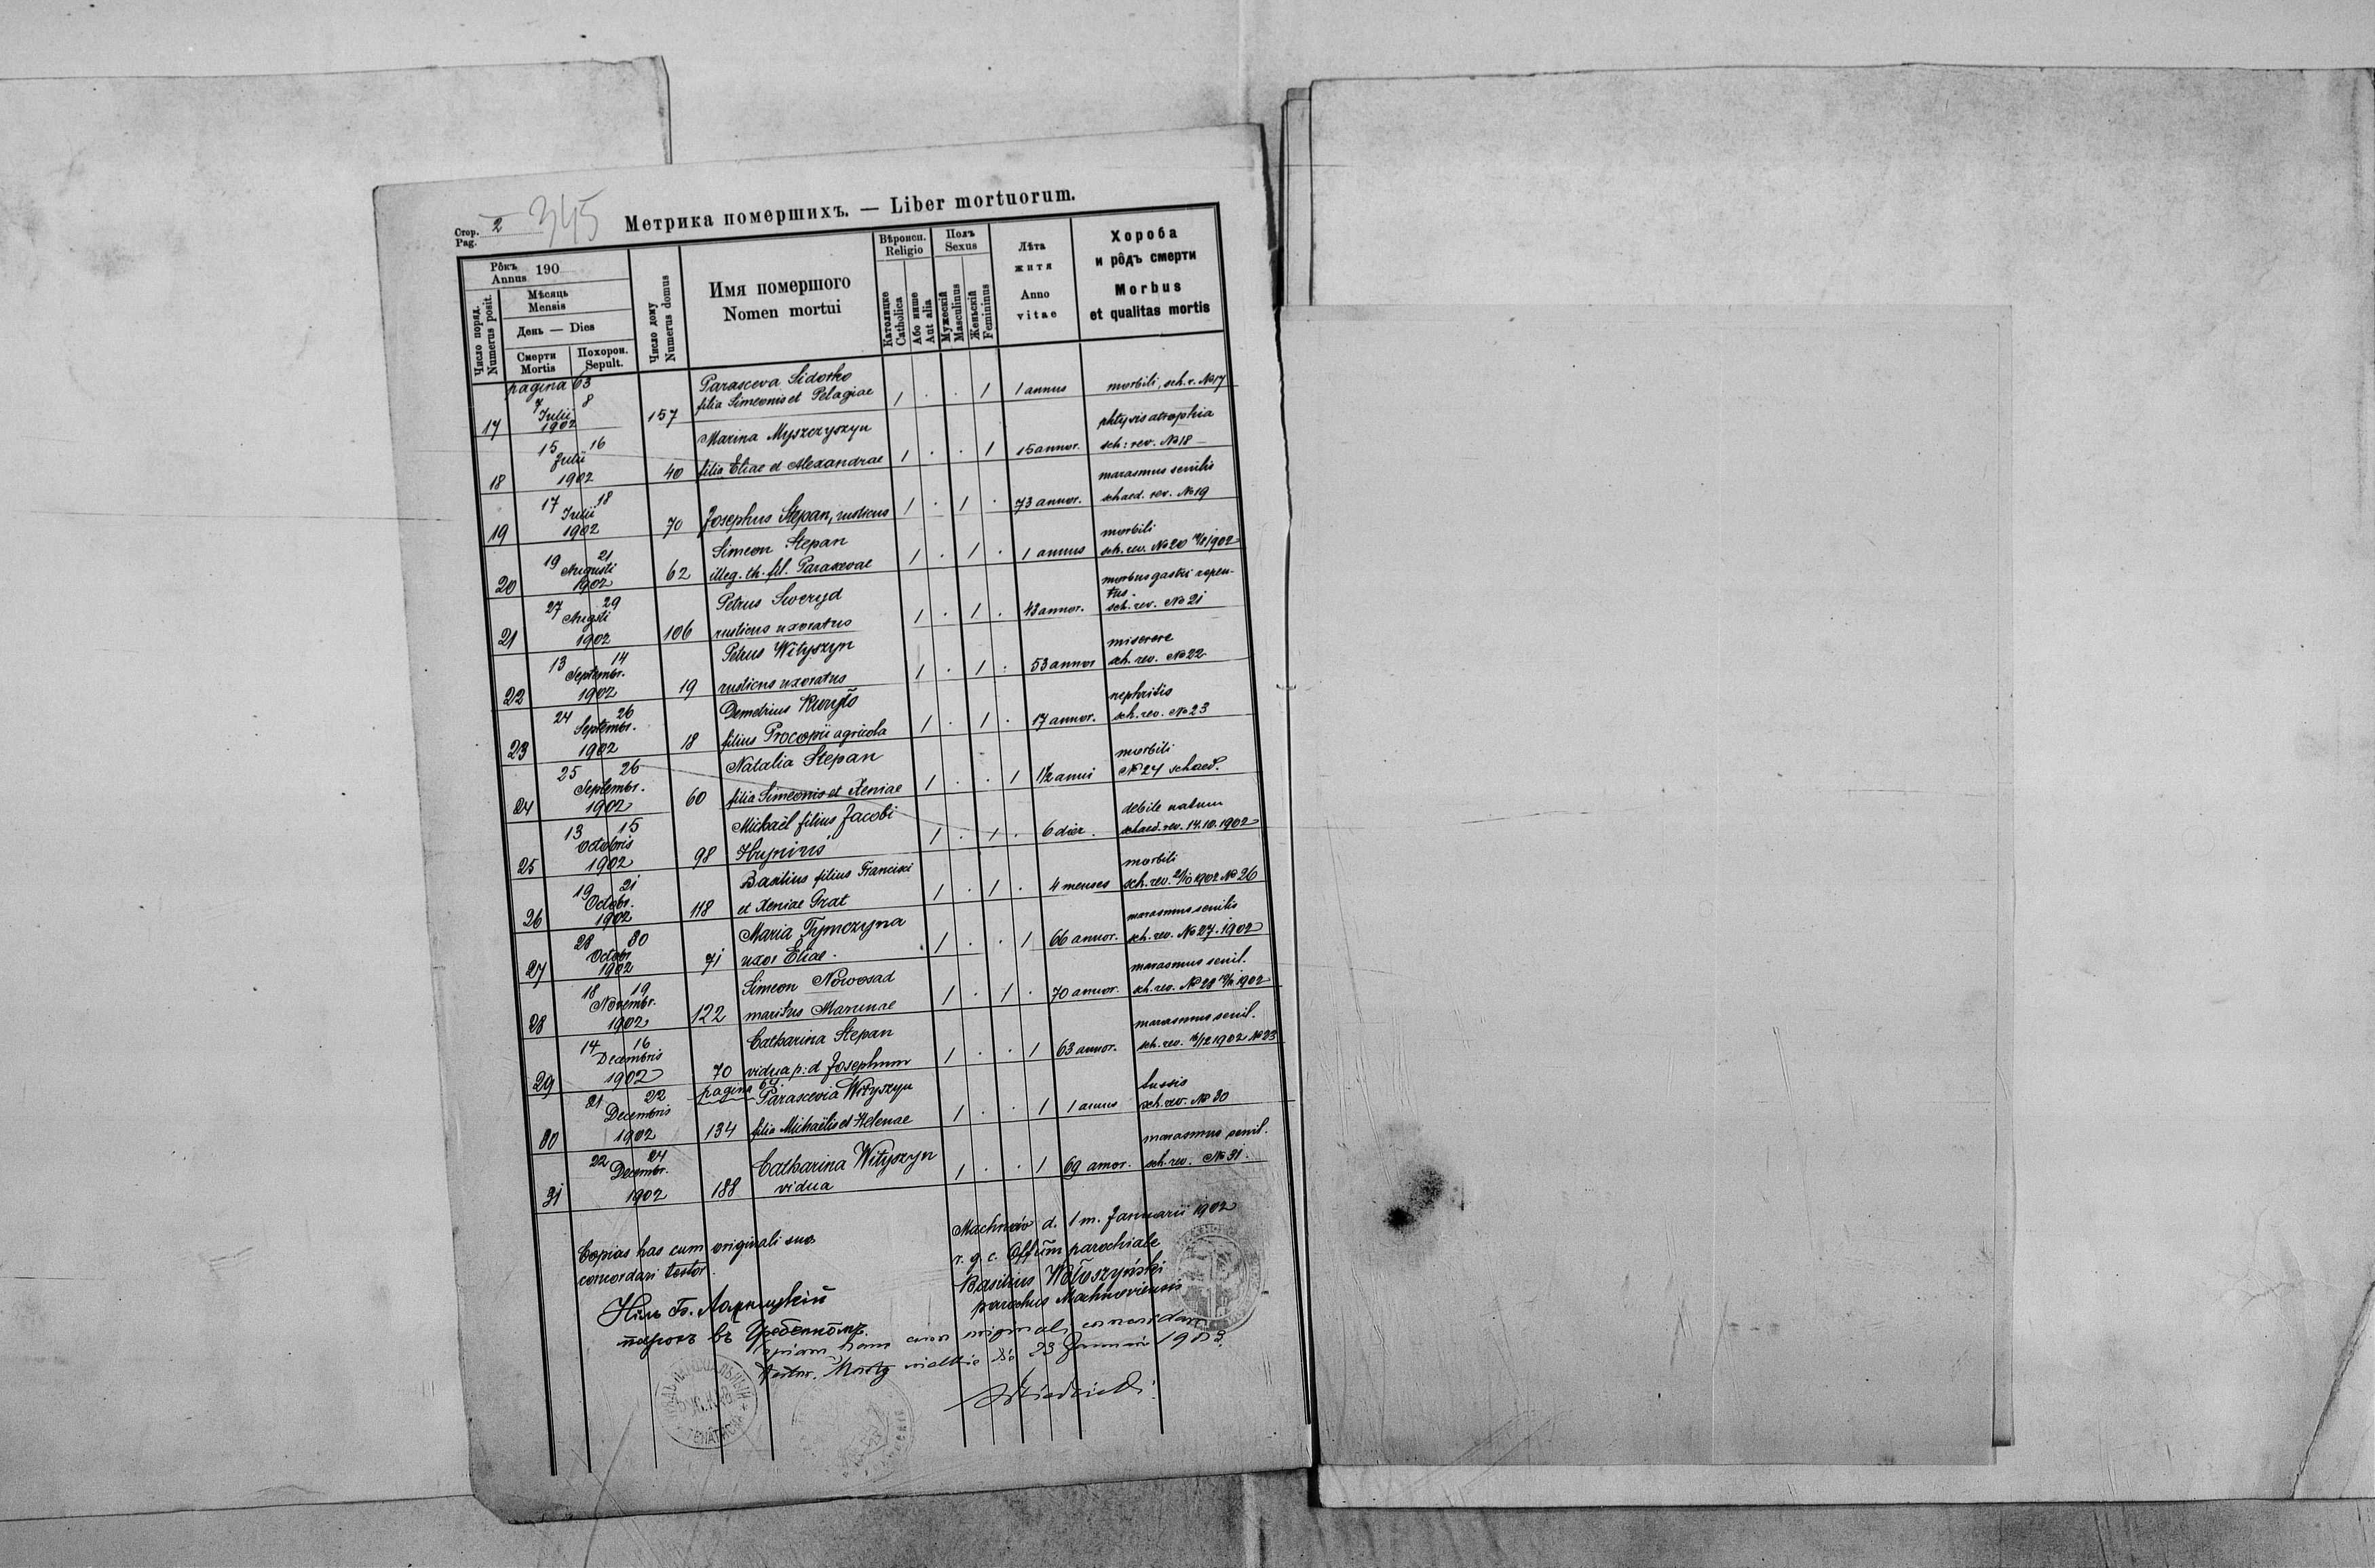 Стор. Pag. 2 345
Метрика помершихъ. — Liber mortuorum.
Рôкъ Annus 190
Число поряд. Numerus posit.
Мѣсяць Mensis
День — Dies
Смерти Mortis
Похорон. Sepult.
Число дому Numerus domus
Имя помершого
Nomen mortui
Вѣроисп. Religio
Католицке Catholica
Або инше Aut alia
Полъ Sexus
Мужескій Masculinus
Женьскій Femininus
Лѣта житя
Anno vitae
Хороба
и рôдъ смерти
Morbus
et qualitas mortis
pagina 63
17 7 8 Julii 1902 157 Parasceva Sidorko 1 . . 1 1 annus morbili, sch. r. № 17
filia Simeonis et Pelagiae
18 15 16 Julii 1902 40 Marina Myszczyszyn 1 . . 1 15 annor. phtysis atrophia
filia Eliae et Alexandrae sch: rev. № 18
19 17 18 Julii 1902 70 Josephus Stepan, rusticus 1 . 1 . 73 annor. marasmus senilis
schaed. rev. № 19
20 19 21 Augusti 1902 62 Simeon Stepan 1 . 1 . 1 annus morbili
illeg. th. fil. Parasevae sch. rev. № 20 1902
21 27 29 Augsti 1902 106 Petrus Sweryd 1 . 1 . 43 annor. morbus gastri repen-
tus.
rusticus uxoratus sch. rev. № 21
22 13 14 Septembr. 1902 19 Petrus Wityszyn 1 . 1 . 53 annor miserere
rusticus uxoratus sch. rev. № 22
23 24 26 Septembr. 1902 18 Demetrius Kuryło 1 . 1 . 17 annor. nephritis
filius Procopii agricola sch. rev. № 23
24 25 26 Septembr. 1902 60 Natalia Stepan 1 . . 1 1½ anni morbili
filia Simeonis et Xeniae № 24 schaed.
25 13 15 Octobris 1902 98 Michaël filius Jacobi 1 . 1 . 6 dier. debile natum
schaed. rev. 14.10.1902
26 19 21 Octobr. 1902 118 Basilius filius Francisci 1 . 1 . 4 menses morbili
et Xeniae Grat sch. rev. 21/10 1902 № 26
27 28 30 Octobr 1902 71 Maria Tymczyna 1 . . 1 66 annor. marasmus senilis
uxor Eliae. sch. rev. № 27. 1902
28 18 19 Novembr. 1902 122 Simeon Nowosad 1 . 1 . 70 annor. marasmus senil.
maritus Marunae sch. rev. № 28 1902
29 14 16 Decembris 1902 70 Catharina Stepan 1 . . 1 63 annor. marasmus senil.
vidua p: d Josephum sch. rev. 16/12 1902
pagina 64.
30 21 22 Decembris 1902 134 Parascevia Wityszyn 1 . . 1 1 annus tussis
filia Michaëlis et Helenae sch. rev. № 30
31 22 24 Decembr. 1902 188 Catharina Wityszyn 1 . . 1 69 annor. marasmus senil.
vidua sch. rev. № 31.
Copias has cum originali suo
concordari testor.
парохъ въ
Machnów d. 1 m. Januarii 1902
r. g. c. Offum parochiale
Basilius Wołoszyński
parochus Machnoviensis
copiam hanc cum originali concordare
testor. Mosty wielkie die 23 Januarii 1903.